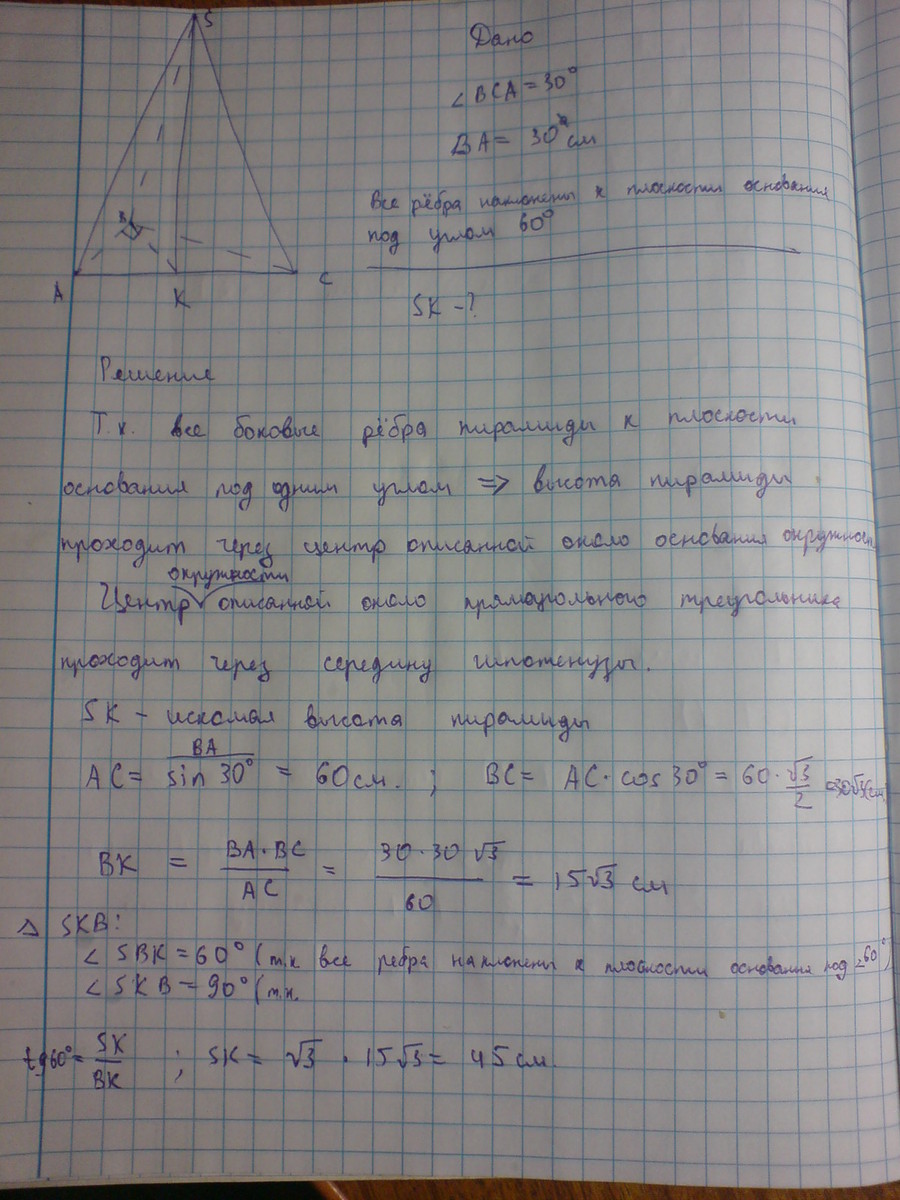 S
B
A
K
C
Дано
∠BCA = 30°
BA = 30 см
Все рёбра наклонены к плоскости основания
под углом 60°
SK - ?
Решение
Т.к. все боковые рёбра пирамиды к плоскости
основания под одним углом => высота пирамиды
проходит через центр описанной около основания окружност
окружности
Центр описанной около прямоугольного треугольника
проходит через середину гипотенузы.
SK - искомая высота пирамиды
AC = BA/sin 30° = 60 см. ; BC = AC · cos 30° = 60 · √3/2 = 30√3 (см)
BK = BA · BC/AC = 30 · 30 √3/60 = 15√3 см
Δ SKB:
∠ SBK = 60° (т.к все ребра наклонены к плоскости основания под ∠60°)
∠ SKB = 90° (т.к.
tg60° = SK/BK ; SK = √3 · 15√3 = 45 см.